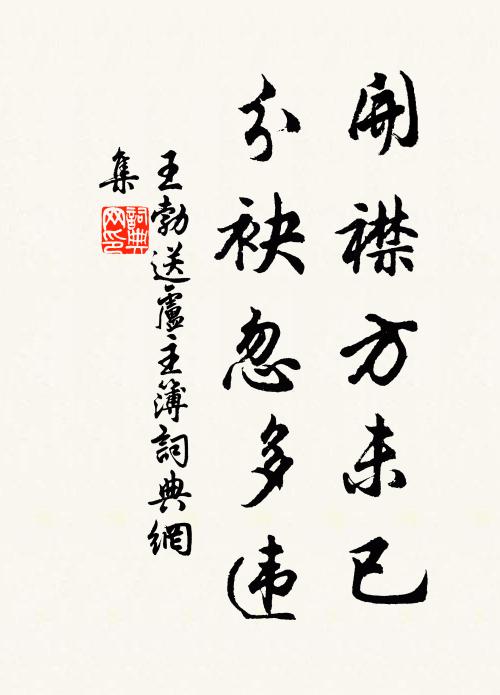 開襟方未已
分袂忽多违
王勃送盧主簿詞典網
集
詞典
网印